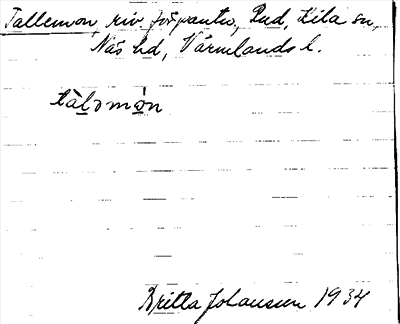 Tallemon, riv. förpantn., Rud, Kila sn,
Näs hd, Värmlands l.
tàlomón
Britta Johansson 1934